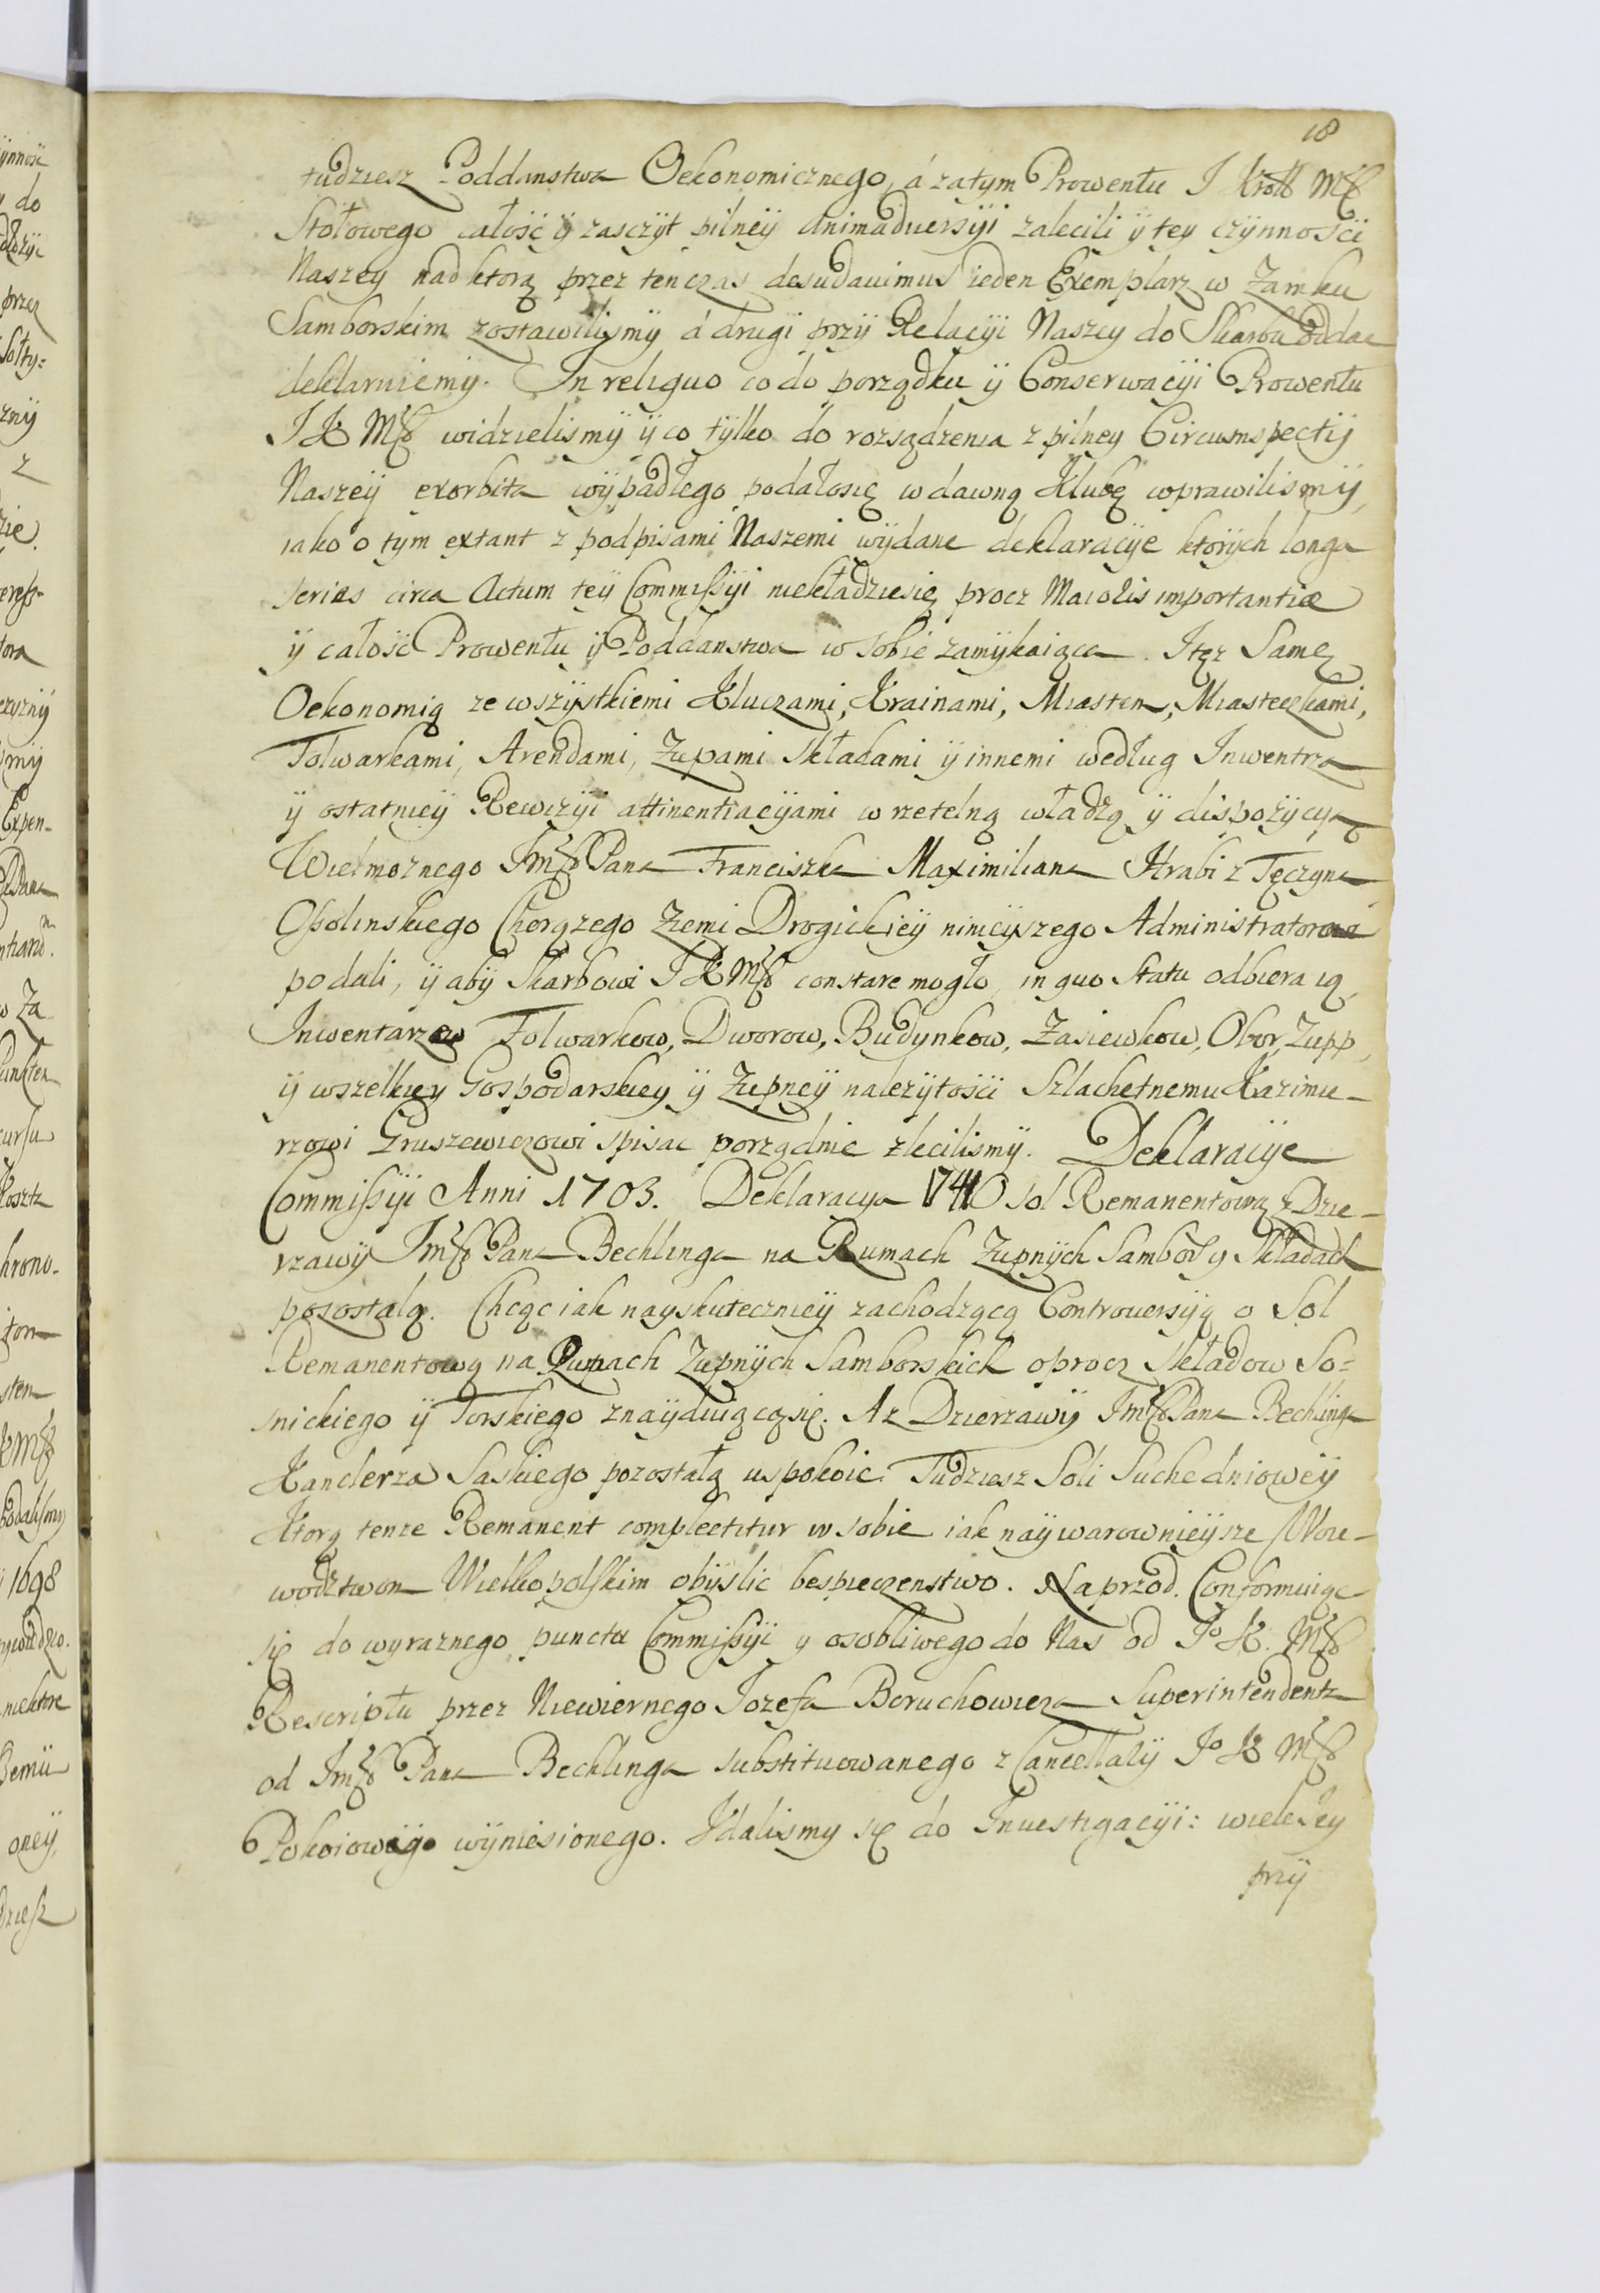 18
tudziesz Poddanstwa Oekonomicznego, á zatym Prowentu J Kroll Mſſ
Stołowego całość ÿ zasczÿt pilneÿ animaduersÿi zalecili ÿ tey czÿnnościi
Naszey nad ktorą przez tenczas desudauimus ieden Exemplarz w Zamku
Samborskim zostawilismÿ á drugi przÿ Relacÿi Naszey do Skarbu oddac
deklaruiemÿ. In reliquo co do porządku ÿ Conserwacÿi Prowentu
J K Mſſ widzielismÿ ÿ co tÿlko do rozsądzenia z pilney Circumspectÿ
Naszeÿ exorbita wÿpadłego podałosię w dawną Klubę wprawilismÿ,
iako o tym extant z podpisami Naszemi wÿdane deklaracÿe ktorÿch longa
series circa Actum teÿ Commissÿi niekładziesię procz Maioris importantiæ
ÿ całość Prowentu ÿ Poddanstwa w sobie zamÿkaiąca. Itęz Samę
Oekonomią ze wszÿstkiemi Kluczami, Krainami, Miastem, Miasteczkami,
Folwarkami, Arendami, Zupami Składami ÿ innemi według Inwentrza
ÿ ostatnieÿ Rewizÿi attinentiacÿami w rzetelną władzą ÿ dispozÿcyą
Wielmoznego Jmſſ Pana Franciszka Maximiliana Hrabi z Tęczyna
Ossolinskiego Chorązego Ziemi Drogickieÿ ninieÿszego Administratora
podali, ÿ abÿ Skarbowi J K Mſſ constare mogło, in quo Statu odbiera ią,
Inwentarzow Folwarkow, Dworow, Budynkow, Zasiewkow, Obor, Zupp,
ÿ wszelkiey Gospodarskiey ÿ Zupneÿ nalezÿtości Szlachetnemu Kazimie-
rzowi Gruszewiczowi spisac porządnie zlecilismÿ. Deklaracÿe
Commissÿi Anni 1703. Deklaracya 1741 O sol Remanentową z Dzie-
rzawÿ Jmſſ Pana Bechlinga na Rumach Zupnÿch Sambor: y Składach
pozostałą. Chcąc iak nayskutecznieÿ zachodzącą Controuersÿą o Sol
Remanentową na Rumach Zupnÿch Samborskich oprocz Składow So=
snickiego ÿ Torskiego znaÿduiącąsię. A z Dzierzawÿ Jmſſ Pana Bechlinga
Kanclerza Saskiego pozostałą uspokoic. Tudziesz Soli Suchedniowéÿ
Ktorą tenze Remanent complectitur w sobie iak naÿwarownieÿsze Woie-
wodztwom Wielkopolskim obÿslic bespieczenstwo. Naprzod. Conformuiąc
się do wyraznego puncta Commissÿi y osobliwego do Nas od Jº K. Mſſ
Rescriptu przez Niewiernego Jozefa Boruchowicza Superintendenta
od Jmſſ Pana Bechlinga substituowanego z Cancellalÿ Jº K Mſſ
Pokoiowéÿo wÿniesionego. Udalismy się do Inuestigacÿi: wiele tey
przÿ